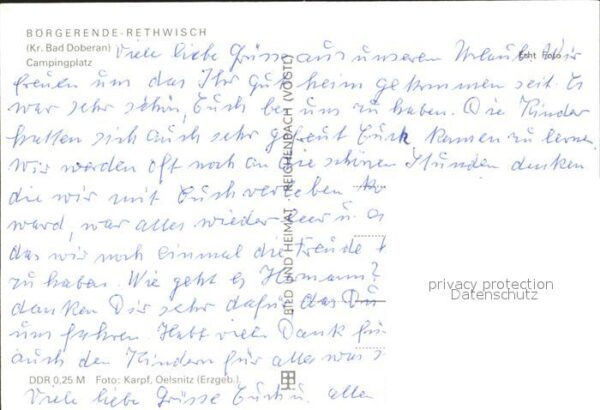 BÖRGERENDE-RETHWISCH
(Kr. Bad Doberan)
Campingplatz
Echt Foto
Viele liebe Grüsse aus unseren Urlaub. Wir
freuen um das Ihr gut heim gekommen seit. Es
war sehr schön, Euch bei um zu haben. Die Kinder
hatten sich auch sehr gefreut Euch kennen zu lernen
Wir werden oft noch an die schönen Stunden denken
die wir mit Euch verleben
ward, war alles wieder leer u.
das wir noch einmal die Freude
zu haben. Wie geht es Hermann?
danken Dir sehr dafür das Du
um fahren. Habt vielen Dank für
auch den Kindern für alles was
DDR 0,25 M Foto: Karpf, Oelsnitz (Erzgeb.)
Viele liebe Grüsse Euch u. allen
BILD UND HEIMAT REICHENBACH (VOGTL)
privacy protection
Datenschutz